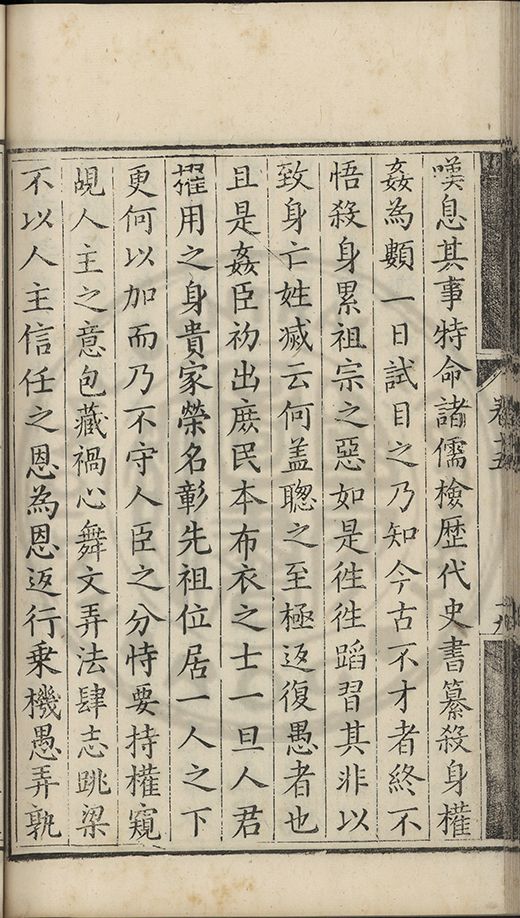 嘆息其事特命諸儒檢歷代史書纂殺身權
姦為顙一日試目之乃知今古不才者終不
悟殺身累祖宗之惡如是徃徃蹈習其非以
致身亡姓滅云何盖聦之至極返復愚者也
且是姦臣初出庶民本布衣之士一旦人君
擢用之身貴家榮名彰先祖位居一人之下
更何以加而乃不守人臣之分恃要持權窺
覘人主之意包藏禍心舞文弄法肆志跳梁
不以人主信任之恩為恩返行乗機愚弄孰
卷十五